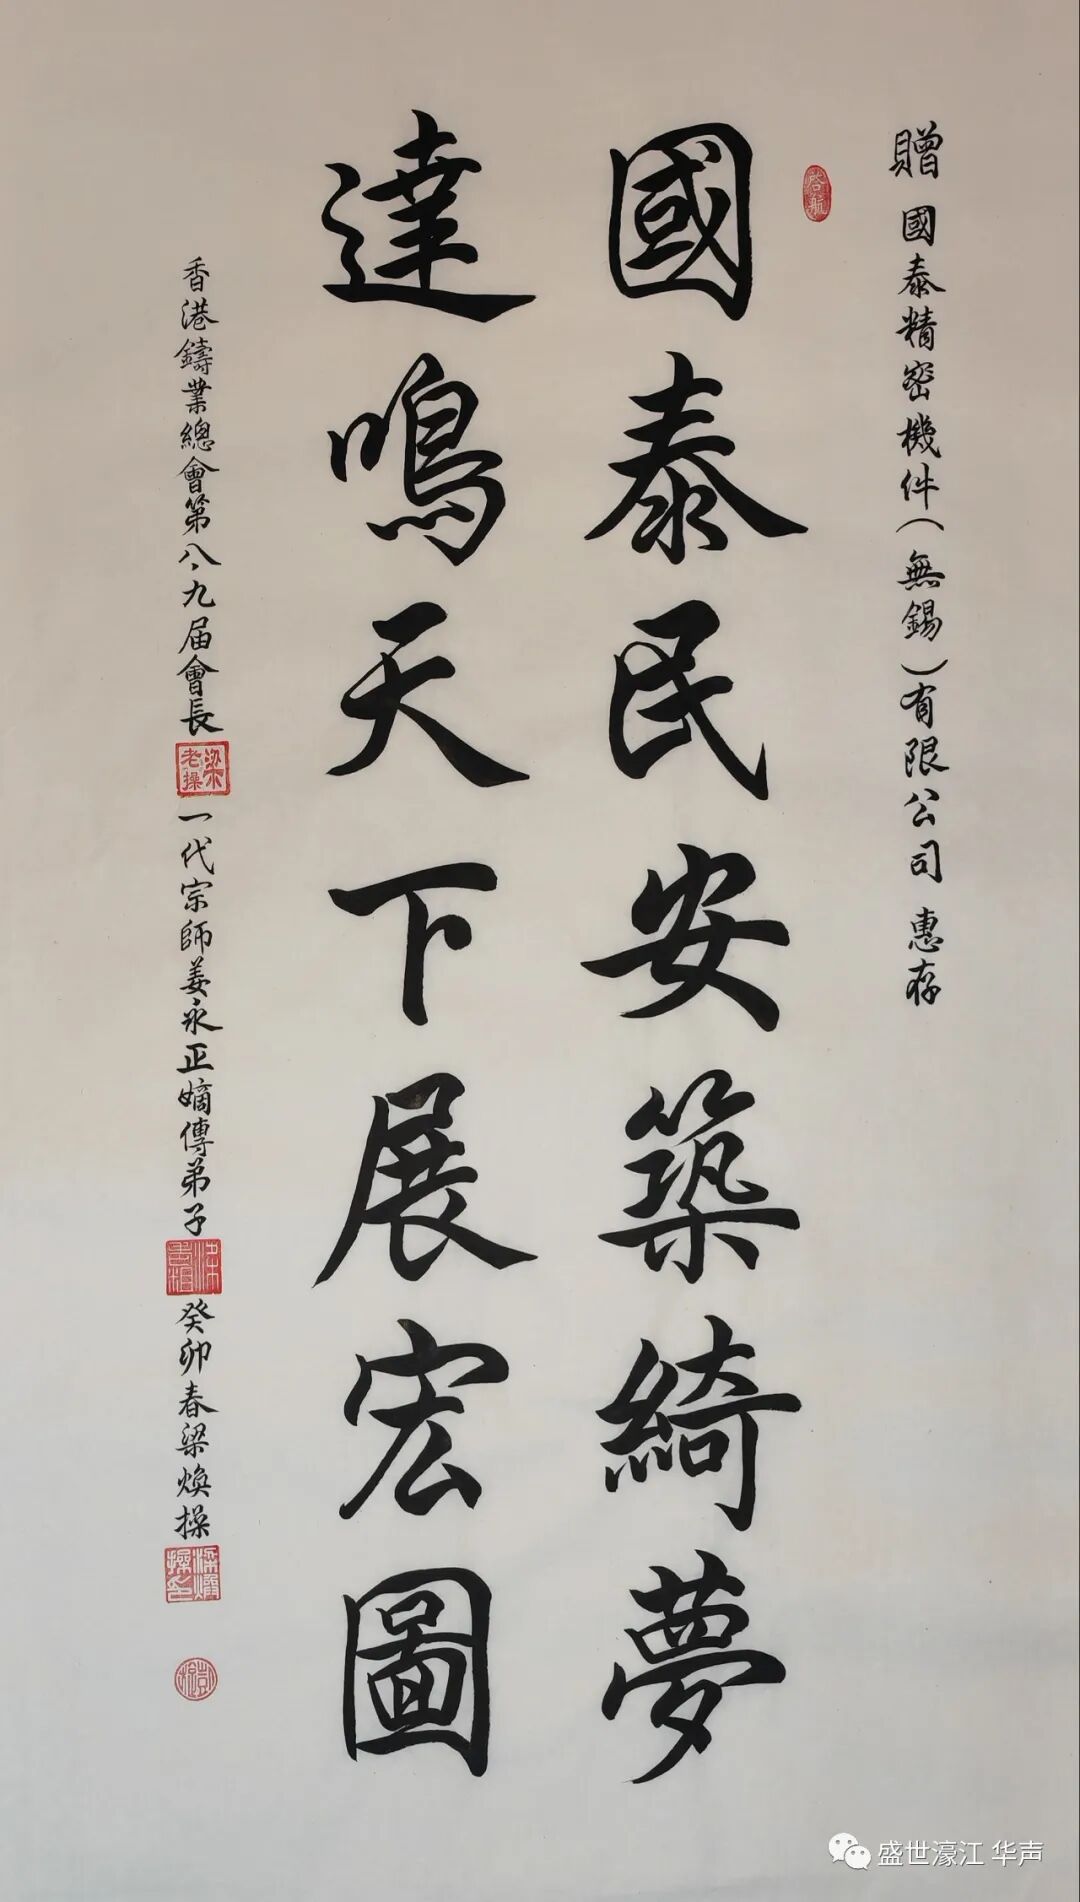 贈 國泰精密機件（無錫）有限公司 惠存
啓航
國泰民安築綺夢
達鳴天下展宏圖
香港鑄業總會第八、九届會長
梁老操
一代宗師姜永正嫡傳弟子
癸卯春梁煥操
盛世濠江 华声